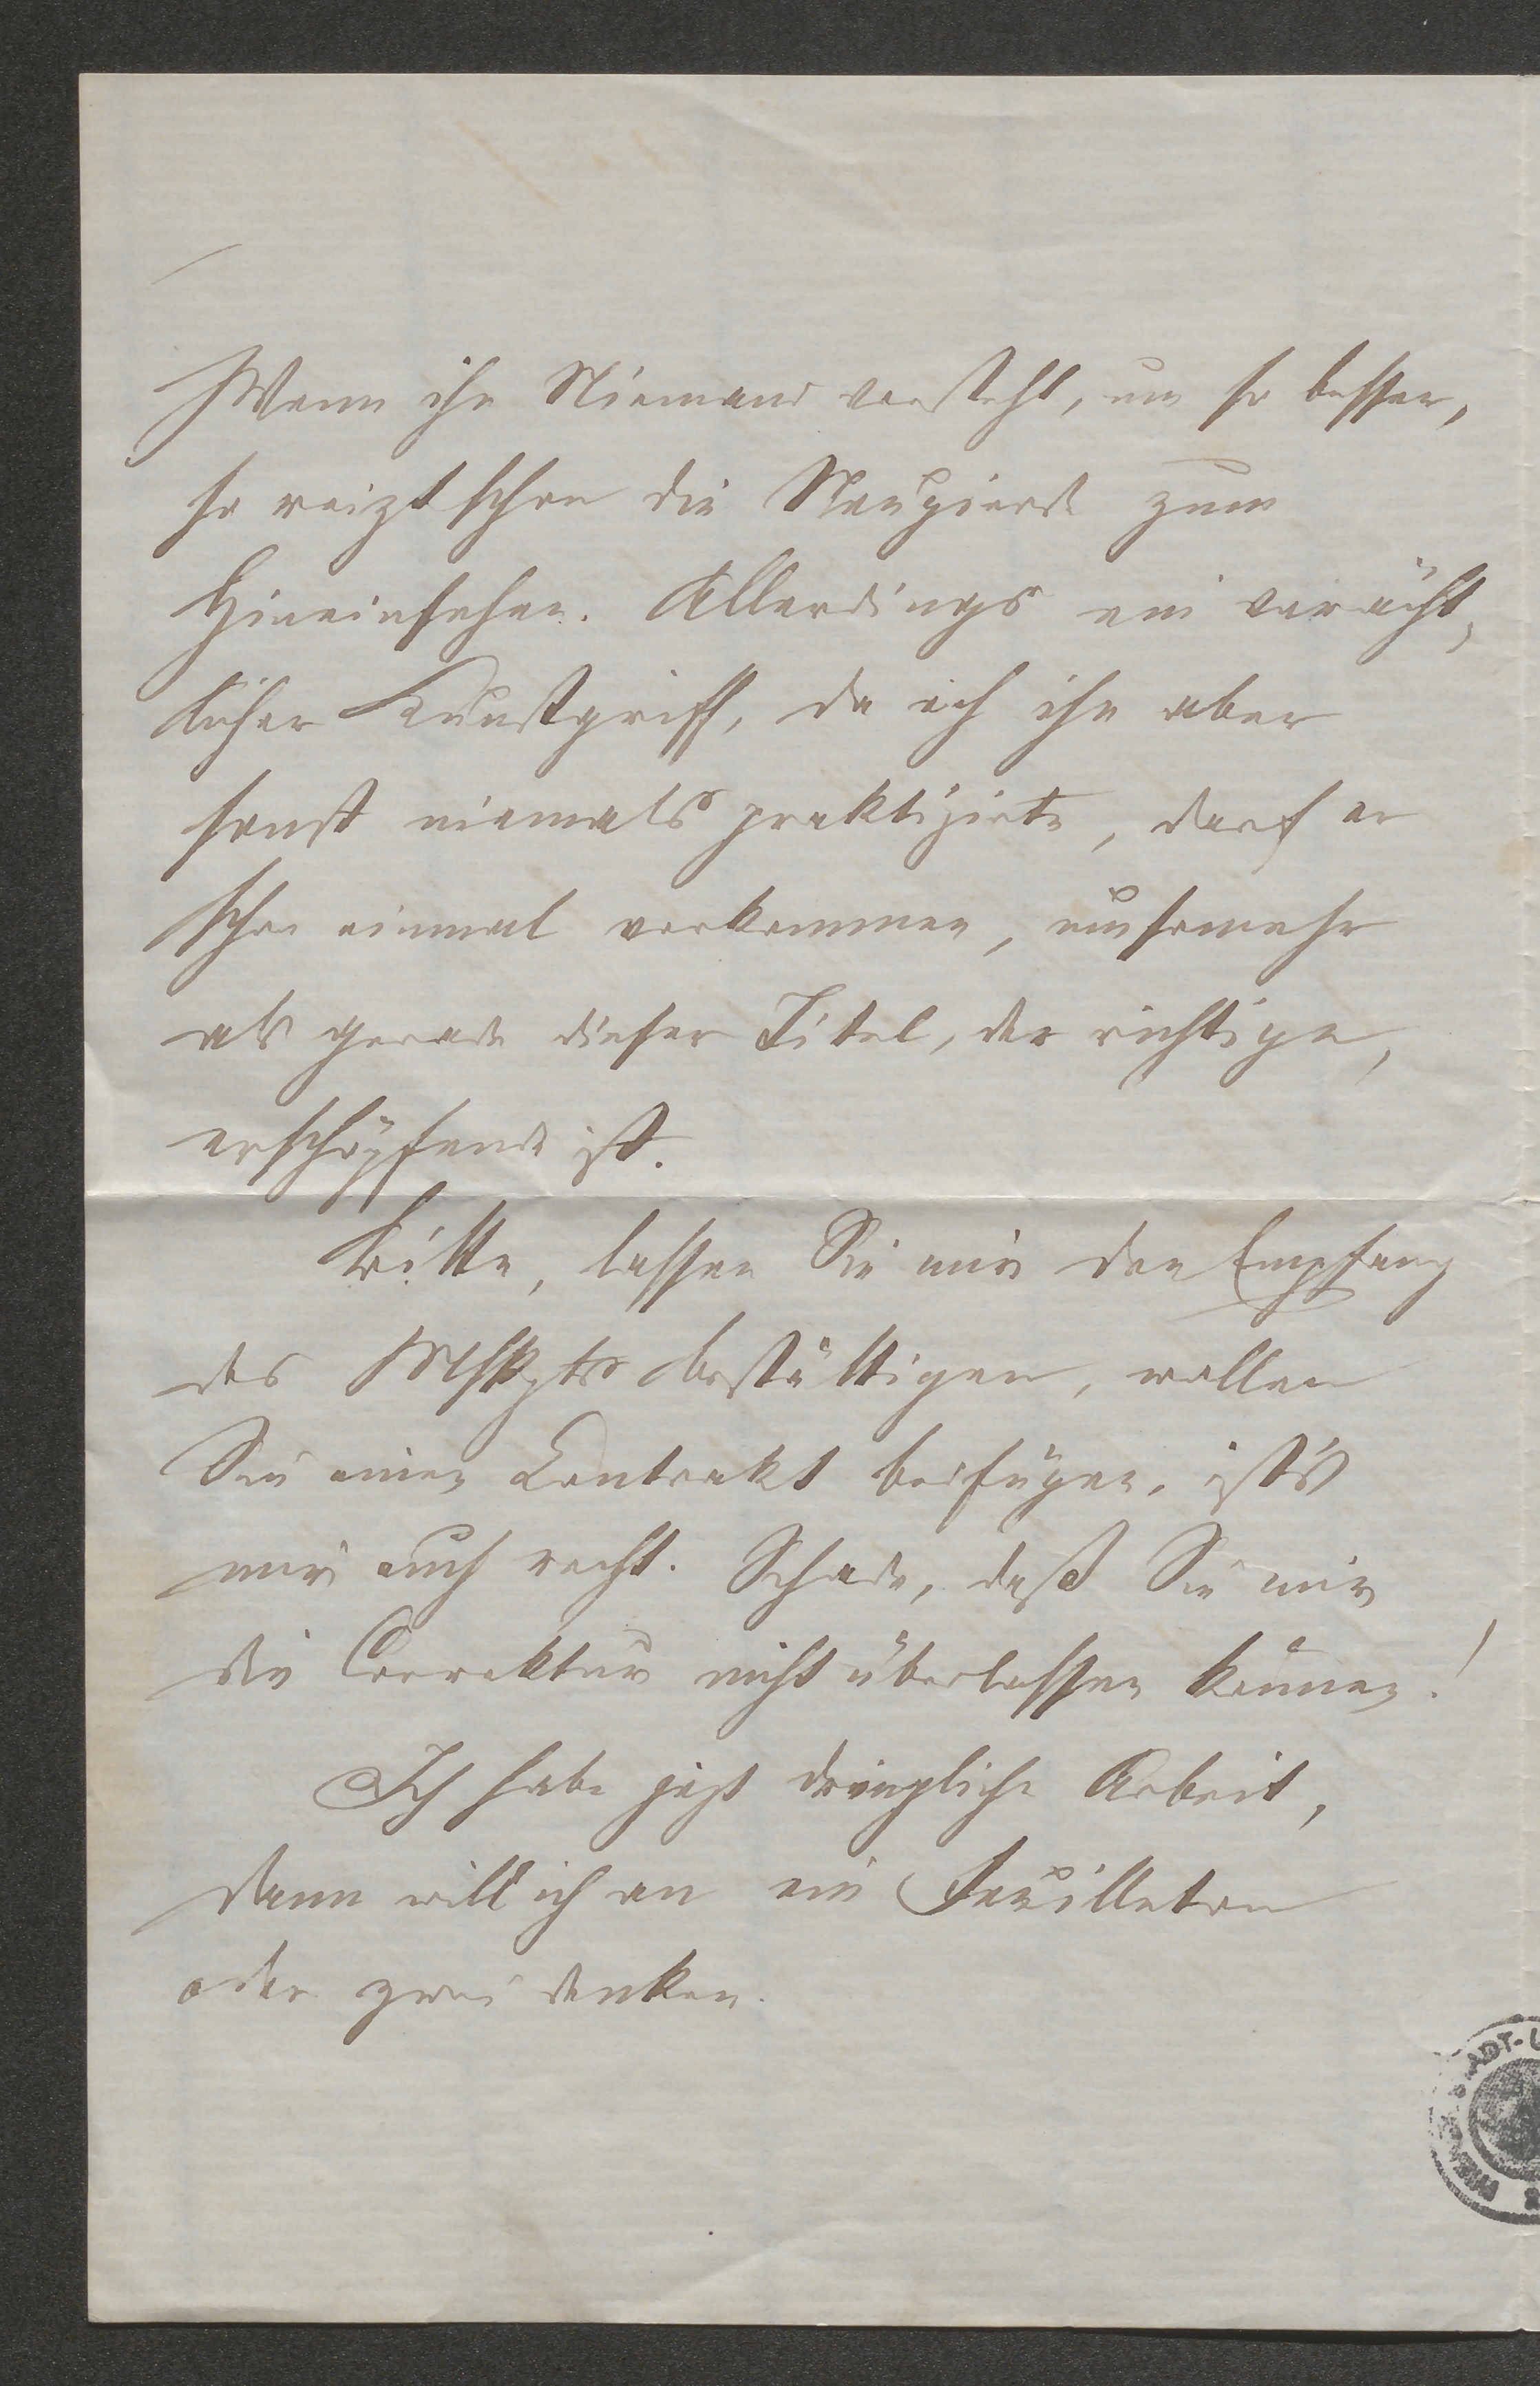 Wenn ihn Niemand versteht, um so besser,
so reizt schon die Neugierde zum
Hineinsehen. Allerdings ein verächt-
licher Kunstgriff, da ich ihn aber
sonst niemals praktizirte, darf er
schon einmal vorkommen, umsomehr
als gerade dieser Titel, der richtige,
erschöpfende ist.
Bitte, lassen Sie mir den Empfang
des Mskpts bestättigen, wollen
Sie einen Contrakt beifügen, ist's
mir auch recht. Schade, daß Sie mir
die Correktur nicht überlassen können!
Ich habe jezt dringliche Arbeit,
dann will ich an ein Feuilleton
oder zwei denken.